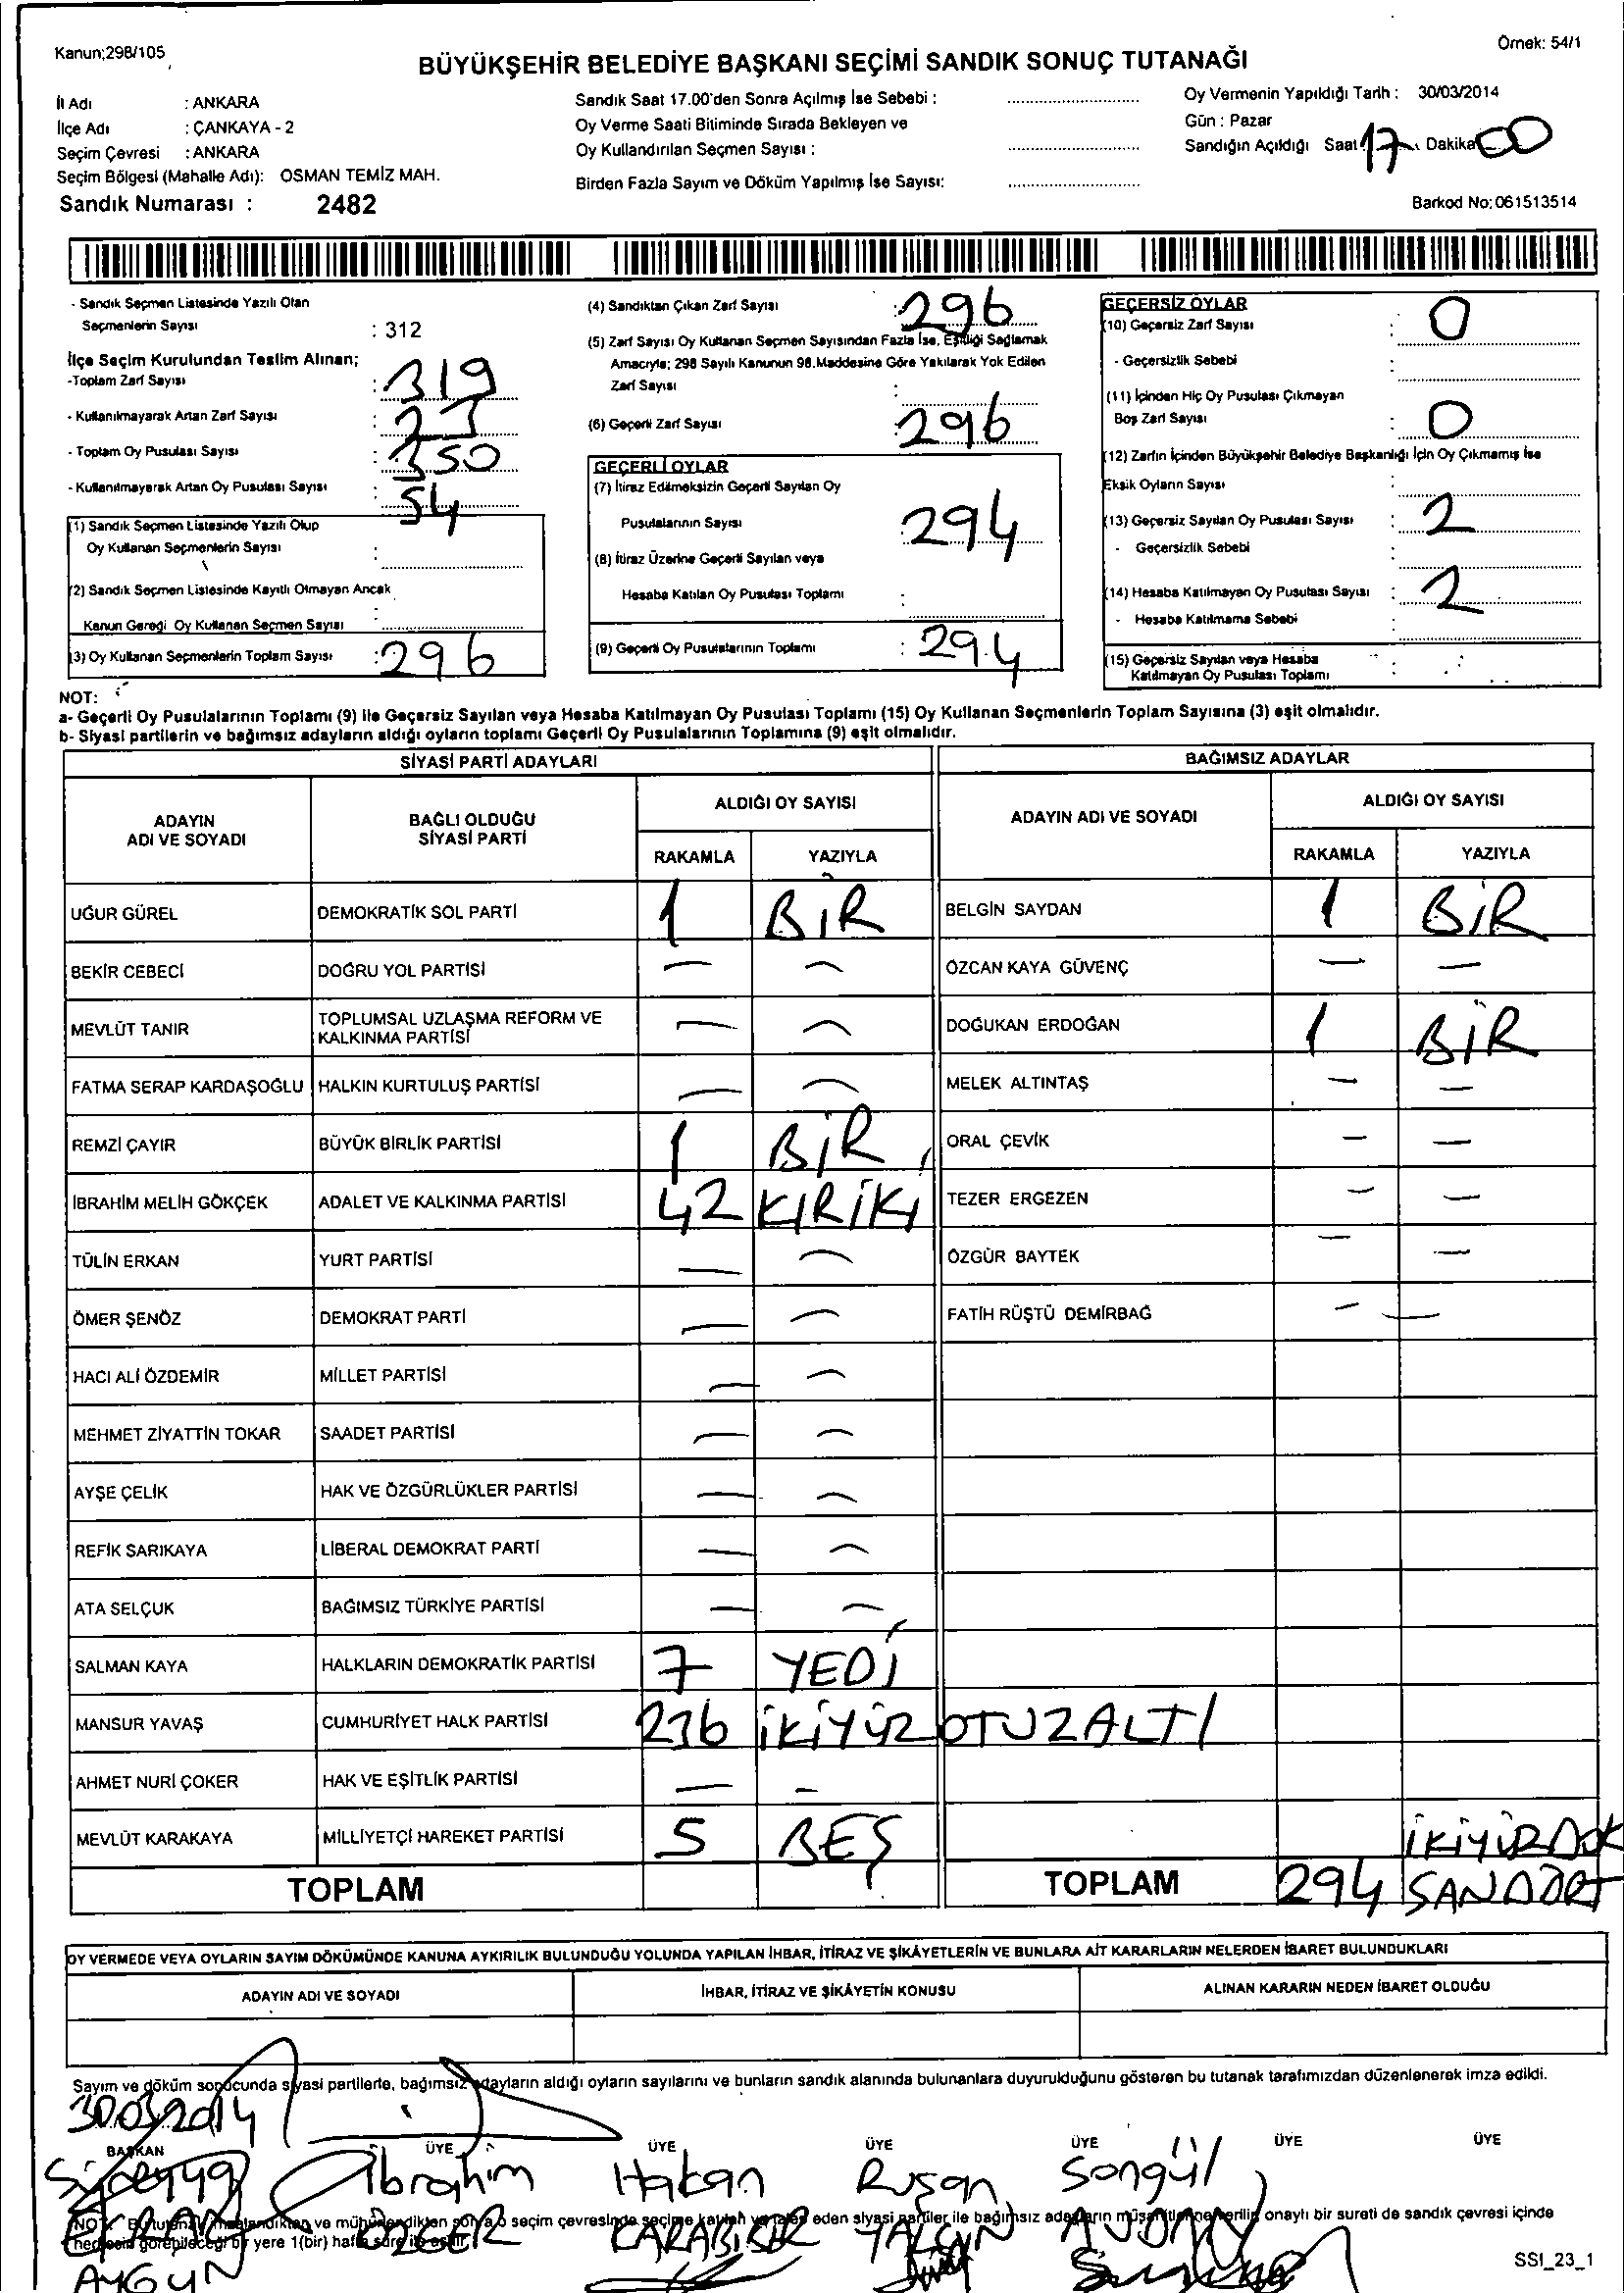 Kanun;298/105
Örnek: 54/1
BÜYÜKŞEHİR BELEDİYE BAŞKANI SEÇİMİ SANDIK SONUÇ TUTANAĞI
İl Adı : ANKARA
İlçe Adı : ÇANKAYA - 2
Seçim Çevresi : ANKARA
Seçim Bölgesi (Mahalle Adı): OSMAN TEMİZ MAH.
Sandık Numarası : 2482
Sandık Saat 17.00'den Sonra Açılmış İse Sebebi :
Oy Verme Saati Bitiminde Sırada Bekleyen ve
Oy Kullandırılan Seçmen Sayısı :
Birden Fazla Sayım ve Döküm Yapılmış İse Sayısı:
Oy Vermenin Yapıldığı Tarih : 30/03/2014
Gün : Pazar
Sandığın Açıldığı Saat 17 Dakika 00
Barkod No: 061513514
- Sandık Seçmen Listesinde Yazılı Olan
Seçmenlerin Sayısı : 312
İlçe Seçim Kurulundan Teslim Alınan;
-Toplam Zarf Sayısı : 319
- Kullanılmayarak Artan Zarf Sayısı :
- Toplam Oy Pusulası Sayısı : 350
- Kullanılmayarak Artan Oy Pusulası Sayısı : 54
(1) Sandık Seçmen Listesinde Yazılı Olup
Oy Kullanan Seçmenlerin Sayısı :
(2) Sandık Seçmen Listesinde Kayıtlı Olmayan Ancak
Kanun Gereği Oy Kullanan Seçmen Sayısı :
(3) Oy Kullanan Seçmenlerin Toplam Sayısı : 296
(4) Sandıktan Çıkan Zarf Sayısı : 296
(5) Zarf Sayısı Oy Kullanan Seçmen Sayısından Fazla İse, Eşitliği Sağlamak
Amacıyla; 298 Sayılı Kanunun 98.Maddesine Göre Yakılarak Yok Edilen
Zarf Sayısı :
(6) Geçerli Zarf Sayısı : 296
GEÇERLİ OYLAR
(7) İtiraz Edilmeksizin Geçerli Sayılan Oy
Pusulalarının Sayısı : 294
(8) İtiraz Üzerine Geçerli Sayılan veya
Hesaba Katılan Oy Pusulası Toplamı :
(9) Geçerli Oy Pusulalarının Toplamı : 294
GEÇERSİZ OYLAR
(10) Geçersiz Zarf Sayısı : 0
- Geçersizlik Sebebi :
(11) İçinden Hiç Oy Pusulası Çıkmayan
Boş Zarf Sayısı : 0
(12) Zarfın İçinden Büyükşehir Belediye Başkanlığı İçin Oy Çıkmamış İse
Eksik Oyların Sayısı :
(13) Geçersiz Sayılan Oy Pusulası Sayısı : 2
- Geçersizlik Sebebi :
(14) Hesaba Katılmayan Oy Pusulası Sayısı : 2
- Hesaba Katılmama Sebebi :
(15) Geçersiz Sayılan veya Hesaba
Katılmayan Oy Pusulası Toplamı :
NOT:
a- Geçerli Oy Pusulalarının Toplamı (9) ile Geçersiz Sayılan veya Hesaba Katılmayan Oy Pusulası Toplamı (15) Oy Kullanan Seçmenlerin Toplam Sayısına (3) eşit olmalıdır.
b- Siyasi partilerin ve bağımsız adayların aldığı oyların toplamı Geçerli Oy Pusulalarının Toplamına (9) eşit olmalıdır.
SİYASİ PARTİ ADAYLARI
BAĞIMSIZ ADAYLAR
ADAYIN ADI VE SOYADI
BAĞLI OLDUĞU SİYASİ PARTİ
ALDIĞI OY SAYISI
RAKAMLA YAZIYLA
ADAYIN ADI VE SOYADI
ALDIĞI OY SAYISI
RAKAMLA YAZIYLA
UĞUR GÜREL DEMOKRATİK SOL PARTİ 1 BİR BELGİN SAYDAN 1 BİR
BEKİR CEBECİ DOĞRU YOL PARTİSİ — — ÖZCAN KAYA GÜVENÇ — —
MEVLÜT TANIR TOPLUMSAL UZLAŞMA REFORM VE KALKINMA PARTİSİ — — DOĞUKAN ERDOĞAN 1 BİR
FATMA SERAP KARDAŞOĞLU HALKIN KURTULUŞ PARTİSİ — — MELEK ALTINTAŞ — —
REMZİ ÇAYIR BÜYÜK BİRLİK PARTİSİ 1 BİR ORAL ÇEVİK — —
İBRAHİM MELİH GÖKÇEK ADALET VE KALKINMA PARTİSİ 42 KIRİKİ TEZER ERGEZEN — —
TÜLİN ERKAN YURT PARTİSİ — — ÖZGÜR BAYTEK — —
ÖMER ŞENÖZ DEMOKRAT PARTİ — — FATİH RÜŞTÜ DEMİRBAĞ — —
HACI ALİ ÖZDEMİR MİLLET PARTİSİ — —
MEHMET ZİYATTİN TOKAR SAADET PARTİSİ — —
AYŞE ÇELİK HAK VE ÖZGÜRLÜKLER PARTİSİ — —
REFİK SARIKAYA LİBERAL DEMOKRAT PARTİ — —
ATA SELÇUK BAĞIMSIZ TÜRKİYE PARTİSİ — —
SALMAN KAYA HALKLARIN DEMOKRATİK PARTİSİ 7 YEDİ
MANSUR YAVAŞ CUMHURİYET HALK PARTİSİ 236 İKİYÜZOTUZALTI
AHMET NURİ ÇOKER HAK VE EŞİTLİK PARTİSİ — —
MEVLÜT KARAKAYA MİLLİYETÇİ HAREKET PARTİSİ 5 BEŞ
TOPLAM TOPLAM 294 İKİYÜZDOK
SANDÖRT
OY VERMEDE VEYA OYLARIN SAYIM DÖKÜMÜNDE KANUNA AYKIRILIK BULUNDUĞU YOLUNDA YAPILAN İHBAR, İTİRAZ VE ŞİKÂYETLERİN VE BUNLARA AİT KARARLARIN NELERDEN İBARET BULUNDUKLARI
ADAYIN ADI VE SOYADI İHBAR, İTİRAZ VE ŞİKÂYETİN KONUSU ALINAN KARARIN NEDEN İBARET OLDUĞU
Sayım ve döküm sonucunda siyasi partilerle, bağımsız adayların aldığı oyların sayılarını ve bunların sandık alanında bulunanlara duyurulduğunu gösteren bu tutanak tarafımızdan düzenlenerek imza edildi.
30.03.2014
BAŞKAN ÜYE ÜYE ÜYE ÜYE ÜYE ÜYE
Süreyya İbrahim Hakan Ruşan Songül
ÖZGER KARABIKER YALÇIN
NOT: ve mühürlendikten sonra o seçim çevresinde seçime eden siyasi partiler ile bağımsız adayların onaylı bir sureti de sandık çevresi içinde
herkesin görebileceği bir yere 1(bir) hafta süre ile asılır.
AYGÜN
SSI_23_1